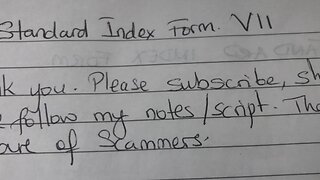 Standard Index Form. VII
k you. Please subscribe, sh
follow my notes/script. Tha
are of Scammers.